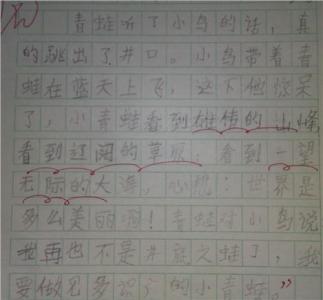 青蛙听了小鸟的话，真
的跳出了井口。小鸟带着青
蛙在蓝天上飞，这下他惊呆
了，小青蛙看到雄伟的山峰
看到辽阔的草原，看到一望
无际的大海，心想：世界是
多么美丽啊！青蛙对小鸟说
我再也不是井底之蛙了，我
要做见多识广的小青蛙。”